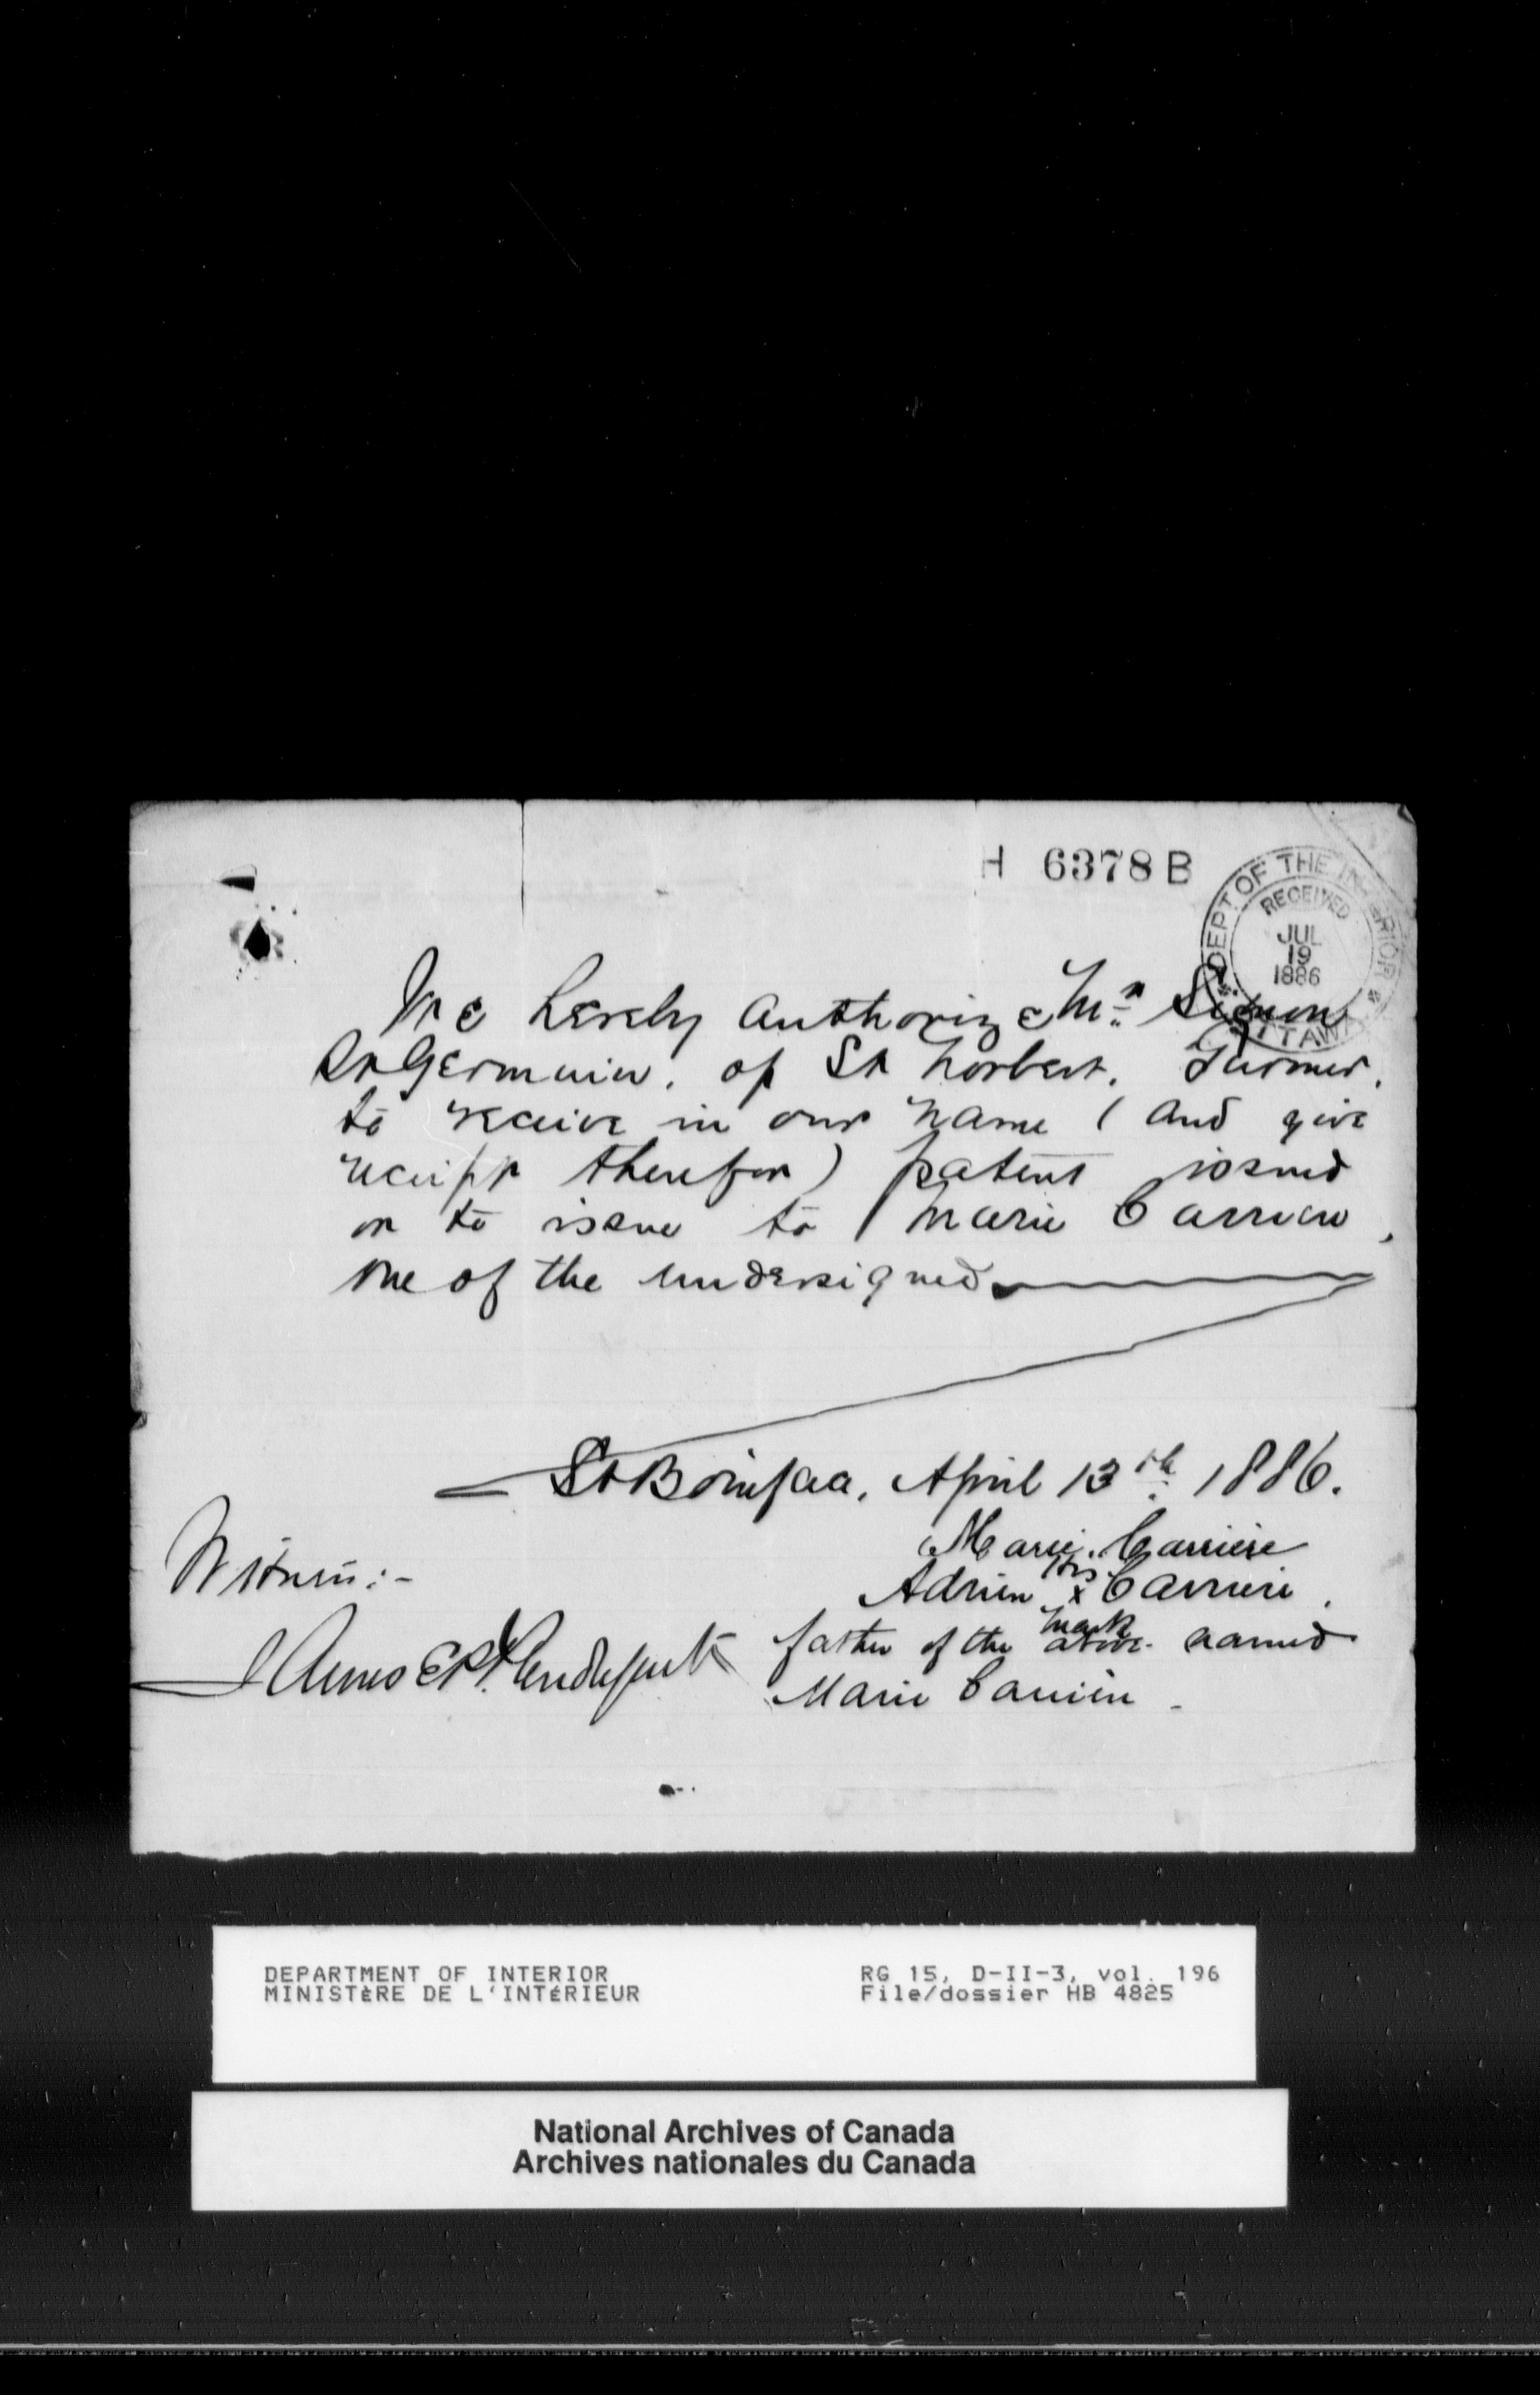 H 6378 B
DEPT OF THE INTERIOR
RECEIVED
JUL
19
1886
OTTAWA
We hereby authorize Mr Simon
St Germain, of St Norbert, Farmer,
to receive in our name (and give
receipt therefor) patent issued
or to issue to Marie Carriere,
one of the undersigned
St Boniface, April 13th 1886.
Marie Carriere
Witness:-
Adrien his x mark Carriere.
father of the above named
Marie Carriere
James E. P.
DEPARTMENT OF INTERIOR
MINISTÈRE DE L'INTÉRIEUR
RG 15, D-II-3, vol. 196
File/dossier HB 4825
National Archives of Canada
Archives nationales du Canada